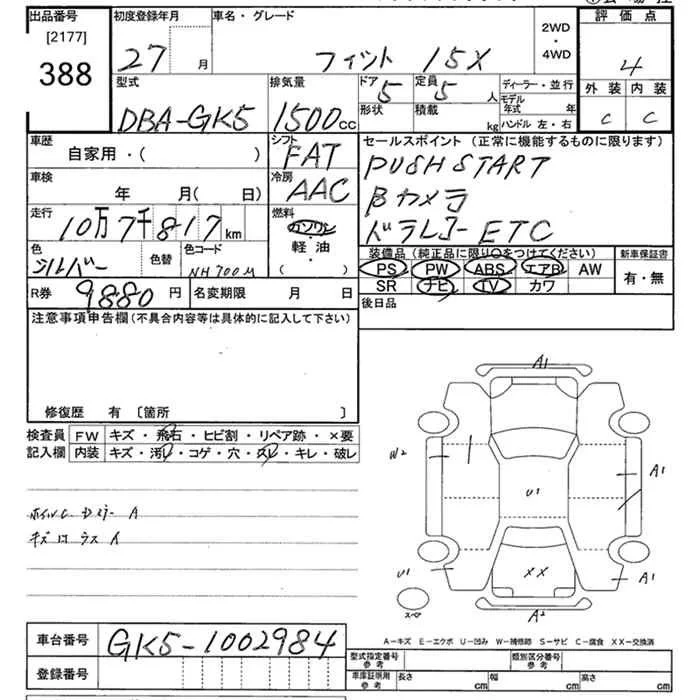 出品番号
[2177]
388
初度登録年月
27 月
車名・グレード
フィット 15X
2WD
・
4WD
評価点
4
外装 内装
C C
型式
DBA-GK5
排気量
1500cc
ドア 5
定員 5 人
形状
積載 kg
ディーラー・並行
モデル年式 年
ハンドル 左・右
車歴
自家用・( )
シフト
FAT
車検
年 月(日)
冷房
AAC
走行
10万7千817km
燃料
ガソリン
・
軽・油
・
( )
色
シルバー
色替
色コード
NH700M
R券 9880円
名変期限 月 日
セールスポイント (正常に機能するものに限ります)
PUSH START
Bカメラ
ドラレコー ETC
装備品(純正品に限り○をつけてください)
PS PW ABS エアB AW
SR ナビ TV カワ
新車保証書
有・無
後日品
注意事項申告欄(不具合内容等は具体的に記入して下さい)
修復歴 有 〔箇所 〕
検査員
記入欄
FW キズ・飛石・ヒビ割・リペア跡・×要
内装 キズ・汚レ・コゲ・穴・スレ・キレ・破レ
A
キズ
A1
W2
A1
U1
U1
XX
A1
スペア
A2
A-キズ E-エクボ U-凹み W-補修跡 S-サビ C-腐食 XX-交換済
車台番号
GK5-1002984
登録番号
型式指定番号
参考
類別区分番号
参考
車庫証明用
参考
長さ cm
幅 cm
高さ cm